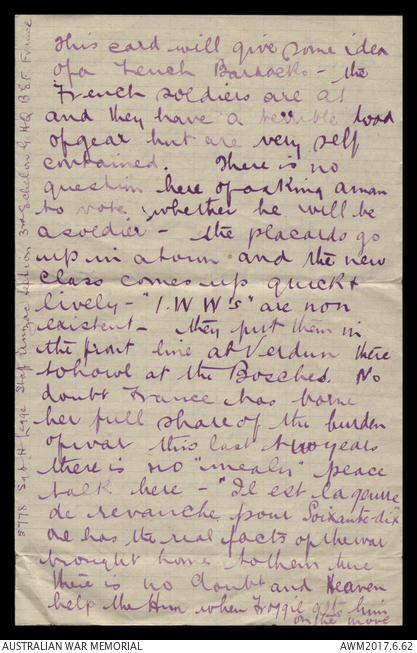 This card will give some idea
of a French Barracks - the
French soldiers are A1
and they have a terrible load
of gear but are very self
contained. There is no
question here of asking a man
to vote whether he will be
a soldier - the placards go
up in a town and the new
class comes up quick &
lively - "I.W W's" are non
existent - they put them in
the front line at Verdun there
to howl at the Bosches. No
doubt France has borne
her full share of the burden
of war this last two years
there is no "mealy" peace
talk here - "Il est la guerre
de revanche pour Soixante-dix
as has the real facts of the war
brought home to them here
there is no doubt and Heaven
help the Hun when Froggie gets him
on the move
5778 Sgt H Legge Staff Anzac Section 3rd Echelon G.H.Q B.E.F. France
AUSTRALIAN WAR MEMORIAL
AWM2017.6.62